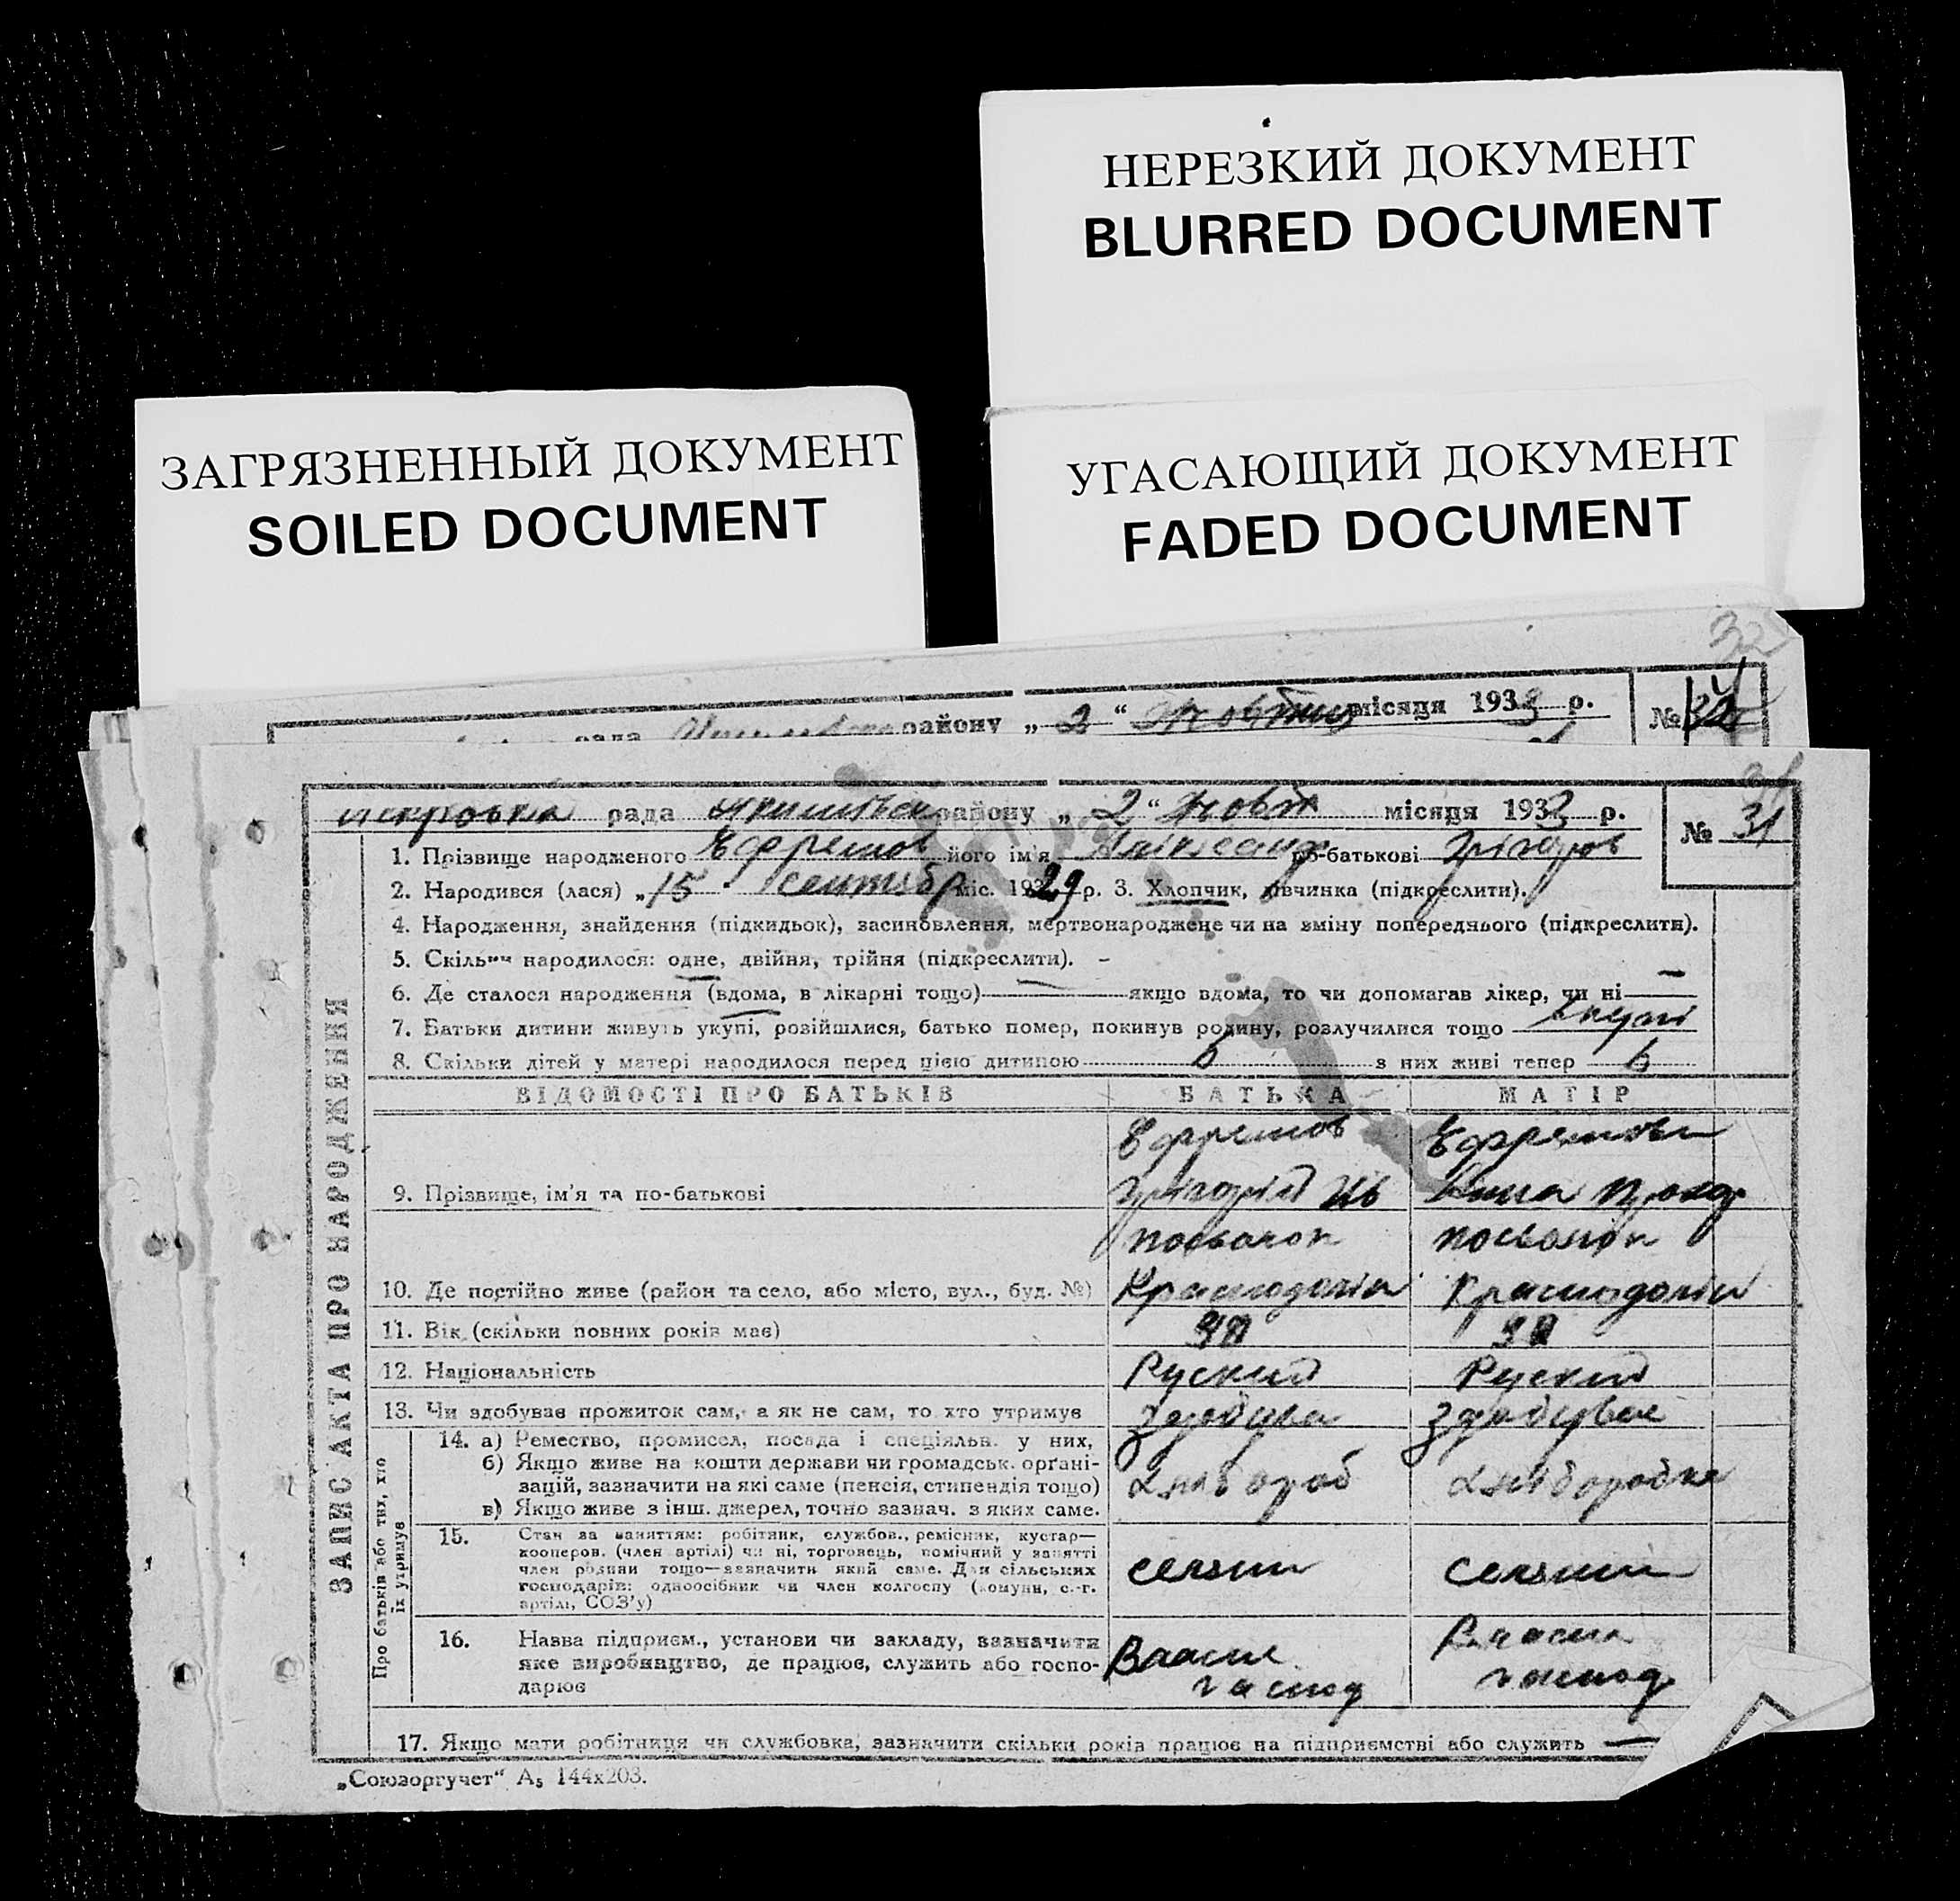 НЕРЕЗКИЙ ДОКУМЕНТ
BLURRED DOCUMENT
ЗАГРЯЗНЕННЫЙ ДОКУМЕНТ
SOILED DOCUMENT
УГАСАЮЩИЙ ДОКУМЕНТ
FADED DOCUMENT
32
рада району „ 2 “ Жовтня місяця 1933 р. № 32
31
рада району „ 2 “ Жовт місяця 1933 р. № 31
1. Прізвище народженого Ефремов його ім'я Аліксандр по-батькові Грігоров
2. Народився (лася) „ 15 сентябр міс. 1929 р. 3. Хлопчик, дівчинка (підкреслити).
4. Народження, знайдення (підкидьок), засиновлення, мертвонароджене чи на зміну попереднього (підкреслити).
5. Скільки народилося: одне, двійня, трійня (підкреслити). –
6. Де сталося народження (вдома, в лікарні тощо) — якщо вдома, то чи допомагав лікар, чи ні —
7. Батьки дитини живуть укупі, розійшлися, батько помер, покинув родину, розлучилися тощо вкупі
8. Скільки дітей у матері народилося перед цією дитиною 6 з них живі тепер 6
ЗАПИС АКТА ПРО НАРОДЖЕННЯ
ВІДОМОСТІ ПРО БАТЬКІВ БАТЬКА МАТІР
Ефремов Ефремова
9. Прізвище, ім'я та по-батькові Грігорій Ив Анна
посьолок посьолок
10. Де постійно живе (район та село, або місто, вул., буд. №) Краснодолін Краснодолін
11. Вік (скільки повних років має)
12. Національність Руский Руский
13. Чи здобуває прожиток сам, а як не сам, то хто утримує здобува здобувае
Про батьків або тих, хто їх утримує
14. а) Ремество, промисел, посада і спеціяльн. у них,
б) Якщо живе на кошти держави чи громадськ. орґані-
зацій, зазначити на які саме (пенсія, стипендія тощо) хлібороб хліборобка
в) Якщо живе з інш. джерел, точно зазнач. з яких саме.
15. Стан за заняттям: робітник, службов., ремісник, кустар—
кооперов. (член артілі) чи ні, торговець, помічний у занятті
член родини тощо—зазначити який саме. Для сільських
господарів: одноосібник чи член колгоспу (комуни, с.-г.
артіль, СОЗ'у) селянин селянин
16. Назва підприєм., установи чи закладу, зазначити
яке виробництво, де працює, служить або госпо-
дарює Власне господ Власне господ
17. Якщо мати робітниця чи службовка, зазначити скільки років працює на підприємстві або служить —
„Союзоргучет“ А₅ 144х203.